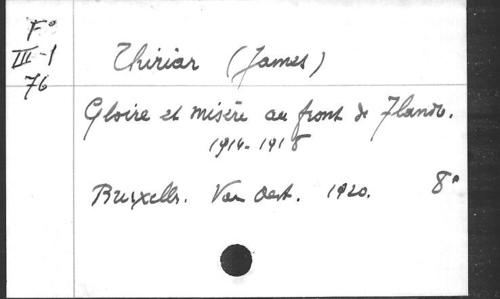 F°
III-1
76
Thiriar (James)
Gloire et misère au front de Flandre.
1914-1918
Bruxelles. Van Oest. 1920. 8°